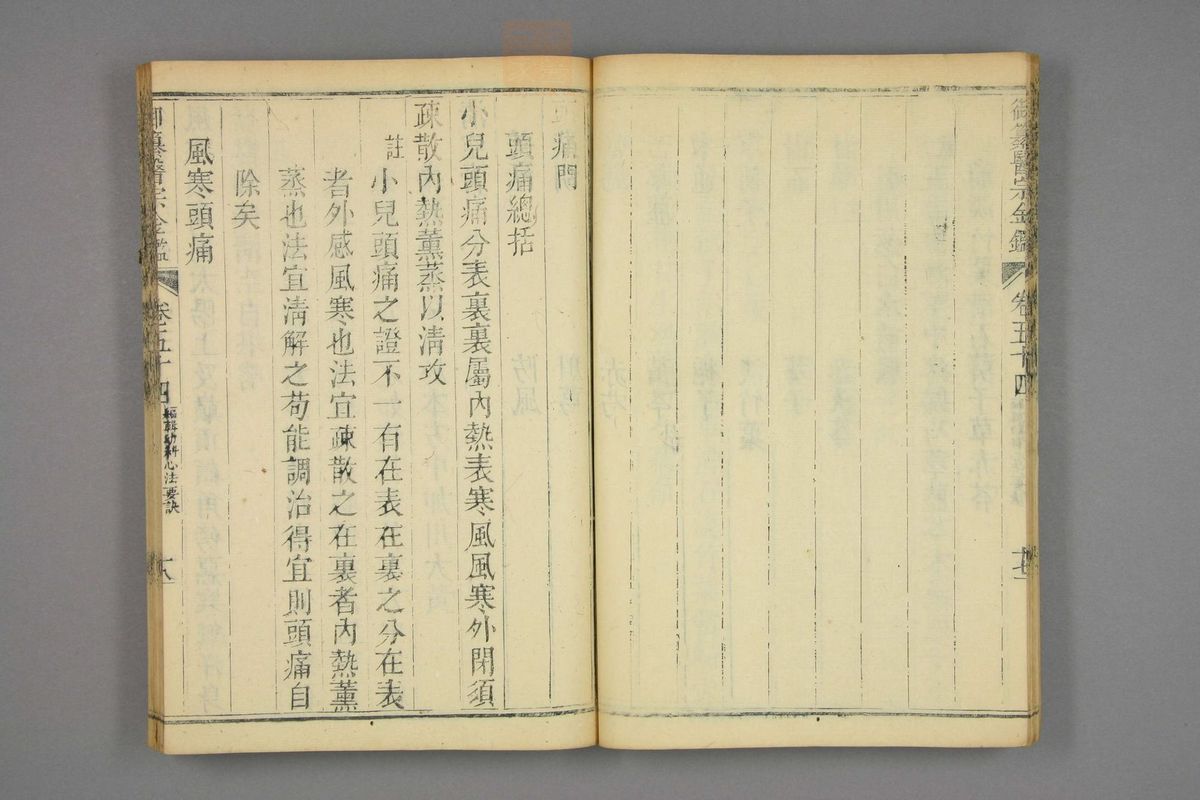 御纂醫宗金鑑 卷五十四 十七
頭痛門
頭痛總括
小兒頭痛分表裏裏屬內熱表寒風風寒外閉須
疎散內熱薰蒸以清攻
註
小兒頭痛之證不一有在表在裏之分在表
者外感風寒也法宜疎散之在裏者內熱薰
蒸也法宜清解之苟能調治得宜則頭痛自
除矣
風寒頭痛
御纂醫宗金鑑 卷五十四 編輯幼科心法要訣 十八